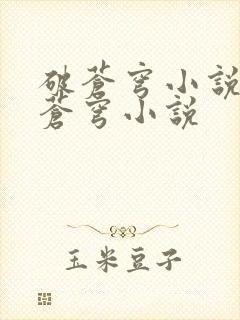 破蒼穹小說
蒼穹小説
玉米豆子